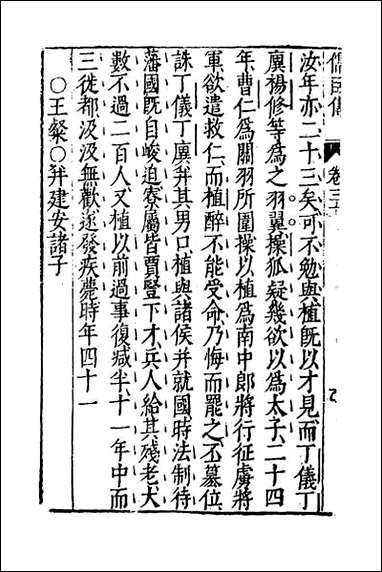 汝年亦二十三矣可不勉與植既以才見而丁儀丁
廙楊修等爲之羽翼操狐疑幾欲以爲太子二十四
年曹仁爲關羽所圍操以植爲南中郎將行征虜將
軍欲遣救仁而植醉不能受命乃悔而罷之丕纂位
誅丁儀丁廙并其男口植與諸侯并就國時法制待
藩國既自峻迫寮屬皆賈豎下才兵人給其殘老大
數不過二百人又植以前過事復减半十一年中而
三徙都汲汲無歡遂發疾薨時年四十一
○王粲○并建安諸子